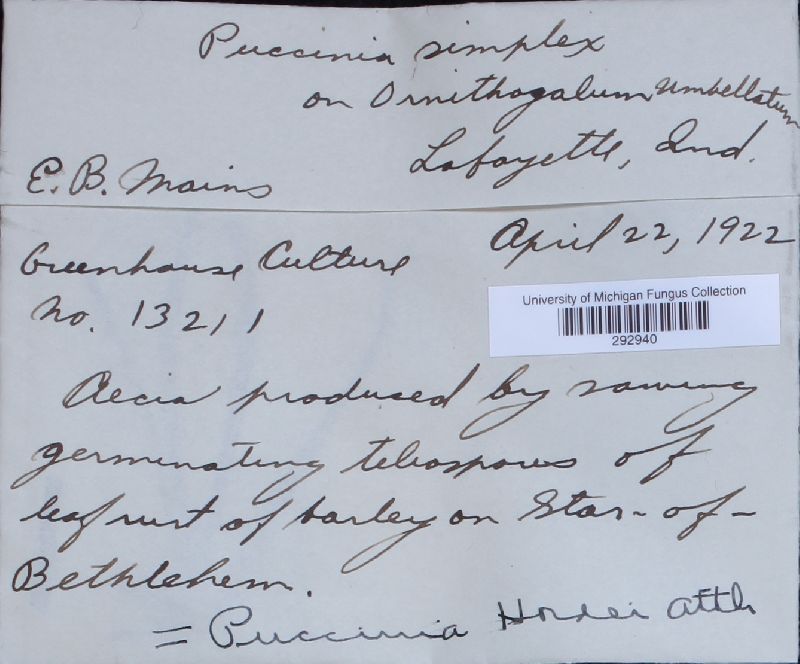 Puccinia simplex
on Ornithogalum umbellatum
Lafayette, Ind.
E. B. Mains
Greenhouse Culture
April 22, 1922
No. 13211
University of Michigan Fungus Collection
292940
Aecia produced by sowing
germinating teliospores of
leaf rust of barley on Star-of-
Bethlehem.
= Puccinia Hordei Otth